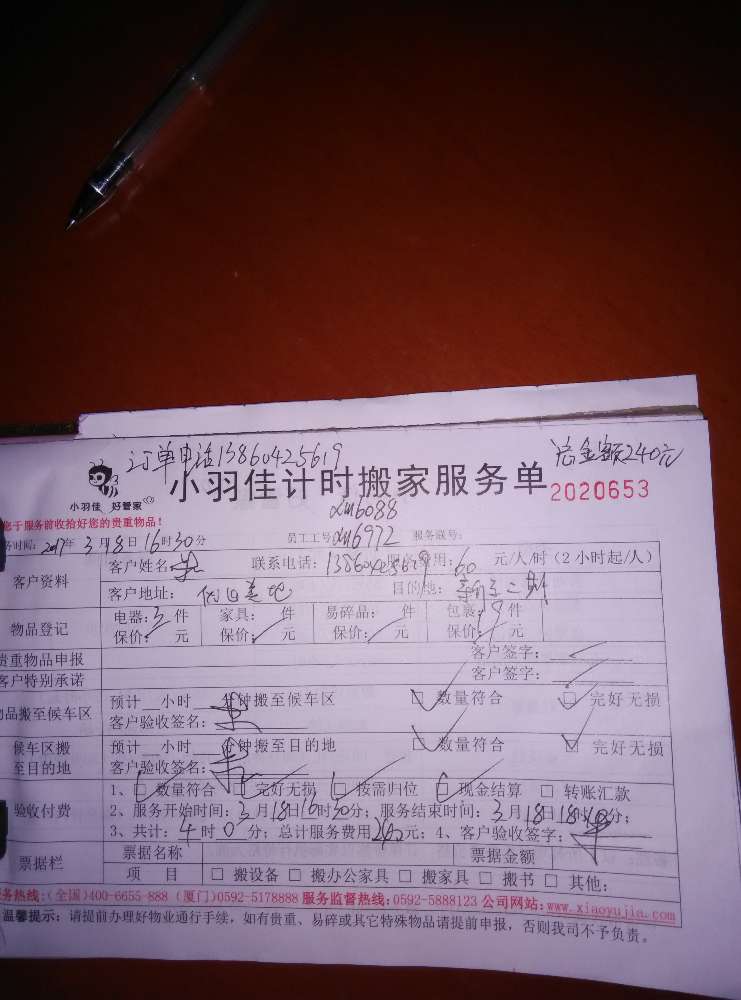 订单电话13860425619 总金额240元
小羽佳 好管家
小羽佳计时搬家服务单 2020653
xm6088
您于服务前收拾好您的贵重物品!
务时间: 2017年3月18日16时30分 员工工号: xm6972 服务账号:
客户资料 客户姓名: 联系电话: 服务费用: 60 元/人/时(2小时起/人)
客户地址: 目的地:
物品登记 电器: 3 件 家具: 件 易碎品: 件 包裹: 9 件
保价: 元 保价: 元 保价: 元 保价: 元
贵重物品申报 客户签字:
客户特别承诺 客户签字:
物品搬至候车区 预计__小时__分钟搬至候车区 □ 数量符合 □ 完好无损
客户验收签名:
候车区搬至目的地 预计__小时__分钟搬至目的地 □ 数量符合 □ 完好无损
客户验收签名:
验收付费 1、□ 数量符合 □ 完好无损 □ 按需归位 □ 现金结算 □ 转账汇款
2、服务开始时间: 3月18日16时30分; 服务结束时间: 3月18日18时分;
3、共计: 4时0分; 总计服务费用240元; 4、客户验收签字:
票据栏 票据名称 票据金额
项 目 □ 搬设备 □ 搬办公家具 □ 搬家具 □ 搬书 □ 其他:
务热线:(全国)400-6655-888 (厦门)0592-5178888 服务监督热线:0592-5888123 公司网站:www.xiaoyujia.com
温馨提示: 请提前办理好物业通行手续, 如有贵重、易碎或其它特殊物品请提前申报, 否则我司不予负责。